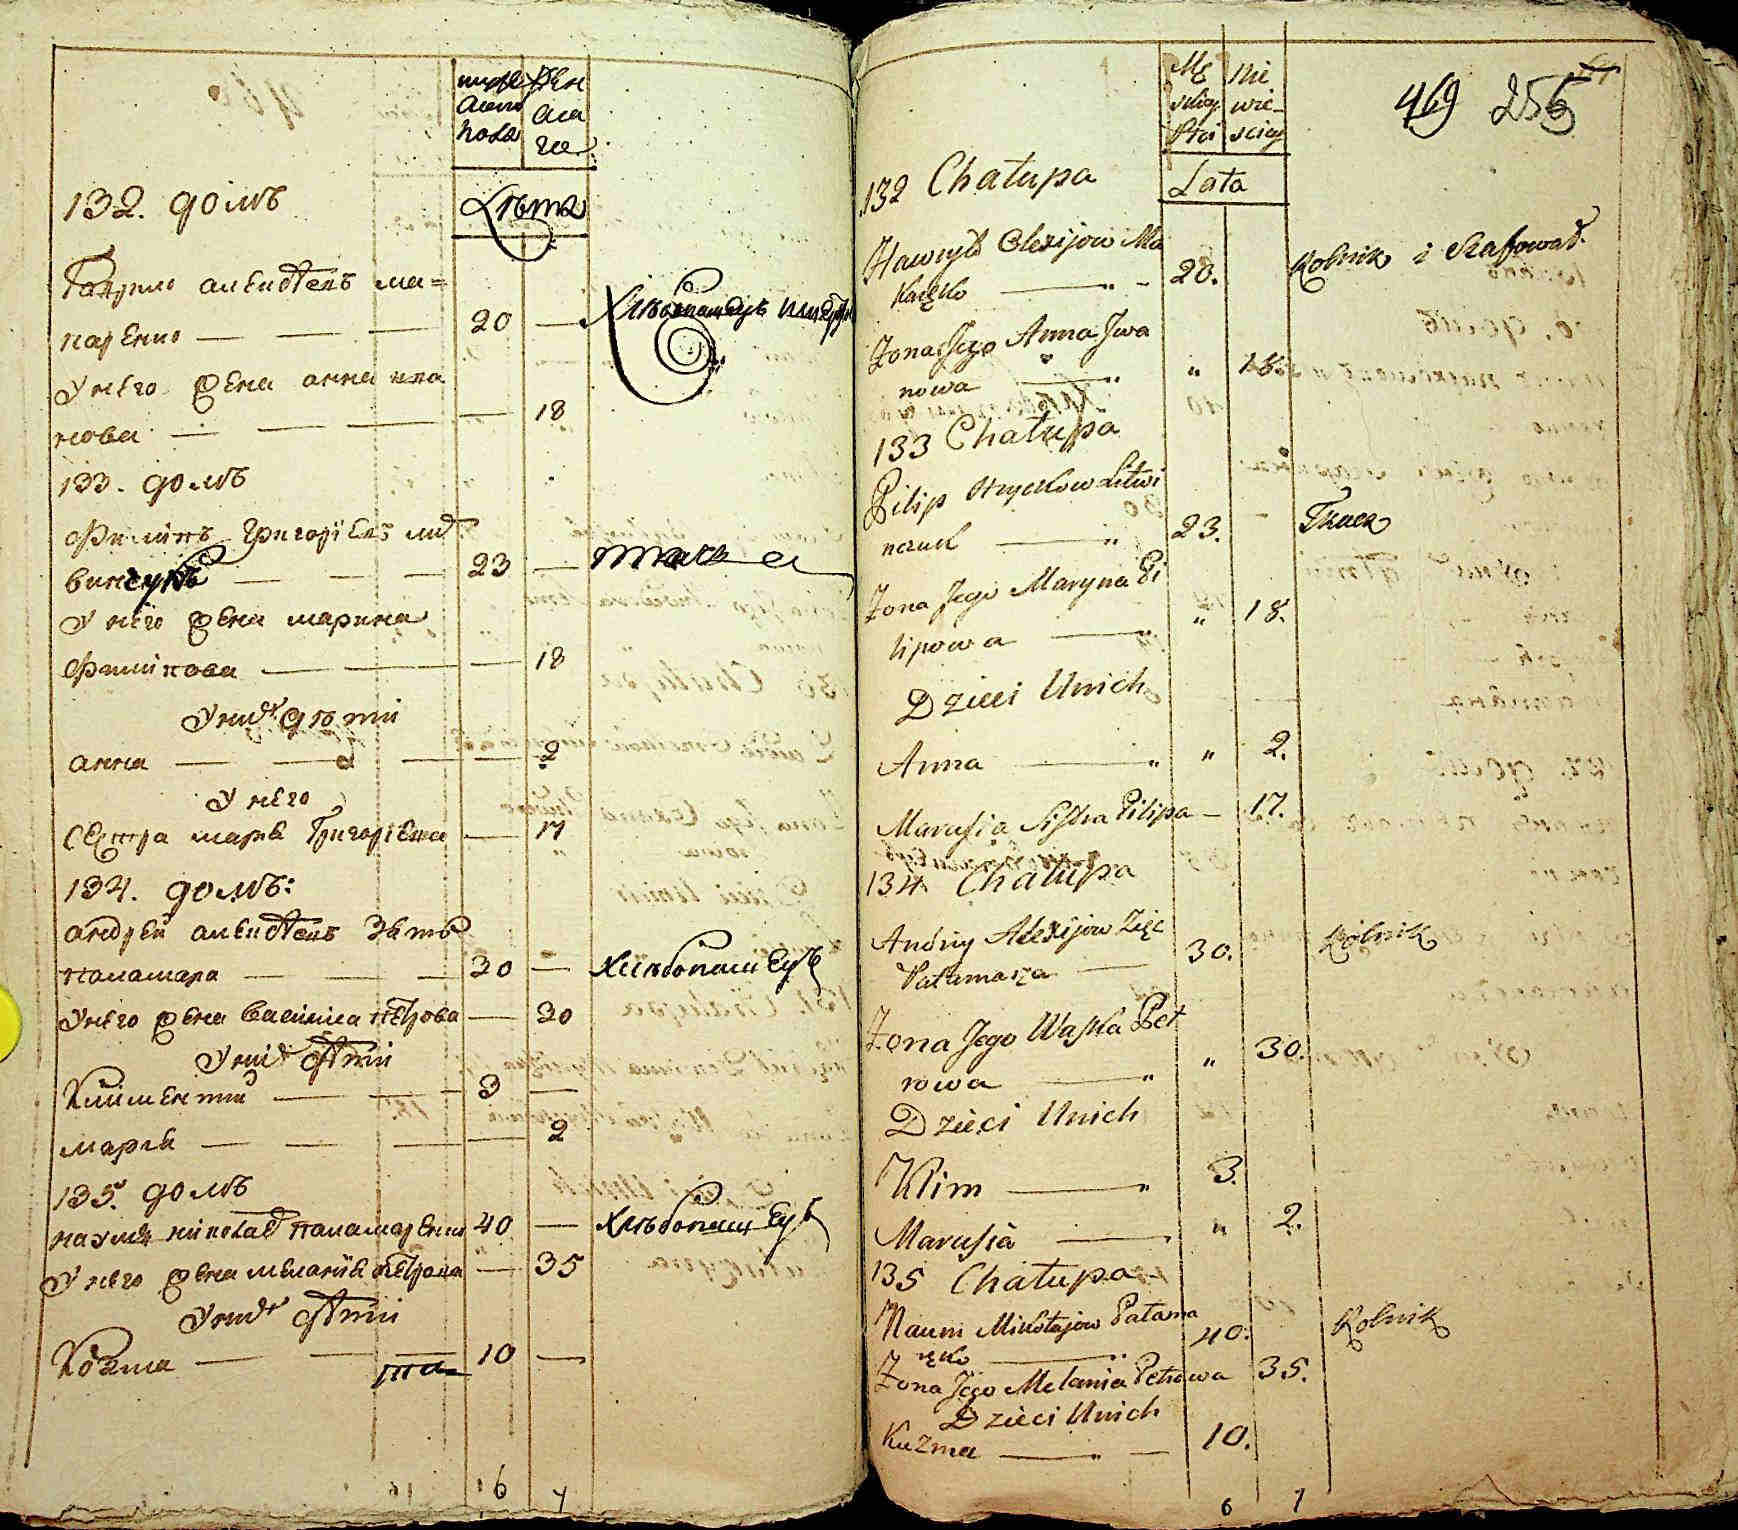 132. домъ
Лѣта
Гаврило алеѯѣевъ ма=
каренко — — — 20 —
У него жена анна ива
нова — — — — 18
133. домъ
Филипъ Григоріевъ лит
винчукъ — — — 23 — ткачъ
У него жена марина
Филипова — — — 18
У нихъ дѣти
анна — — — — 2
У него
сестра маріа Григоріева — 17
134. домъ:
андрей алеѯѣевъ зять
паламара — — — 30 — хлѣбопашецъ
У него жена Василиса петрова — 30
У нихъ дѣти
Климентий — — — 3 —
маріа — — — — 2
135. домъ
наумъ николаевъ паламаренко 40 — хлѣбопашецъ
У него жена меланіа петрова — 35
У нихъ дѣти
Козма — — — 10 —
6 7
469 256
Mę Nie
skiey wie-
Płci sciey
132 Chałupa
Lata
Hawryło Olexijow Ma
karęko — " - 20. Rolnik i
Zona Jego Anna Jwa
nowa — " " 18.
133 Chałupa
Pilip Hryckow Litwi
nczuk — " 23. - Tkacz
Zona Jego Maryna Pi
lipowa — " " 18.
Dzieci Unich
Anna — " " 2.
Marusia Sistra Pilipa — 17.
134 Chałupa
Andriy Alexijow Zięc
Patamarza — 30. Rolnik
Zona Jego Waska Pet
rowa — " " 30.
Dzieci Unich
Klim — " 3.
Marusia — " 2.
135 Chałupa
Naum Mikołajow Pałama
ręko — " 40. Rolnik
Zona Jego Melania Petrowa 35.
Dzieci Unich
Kuzma — " - 10.
6 7